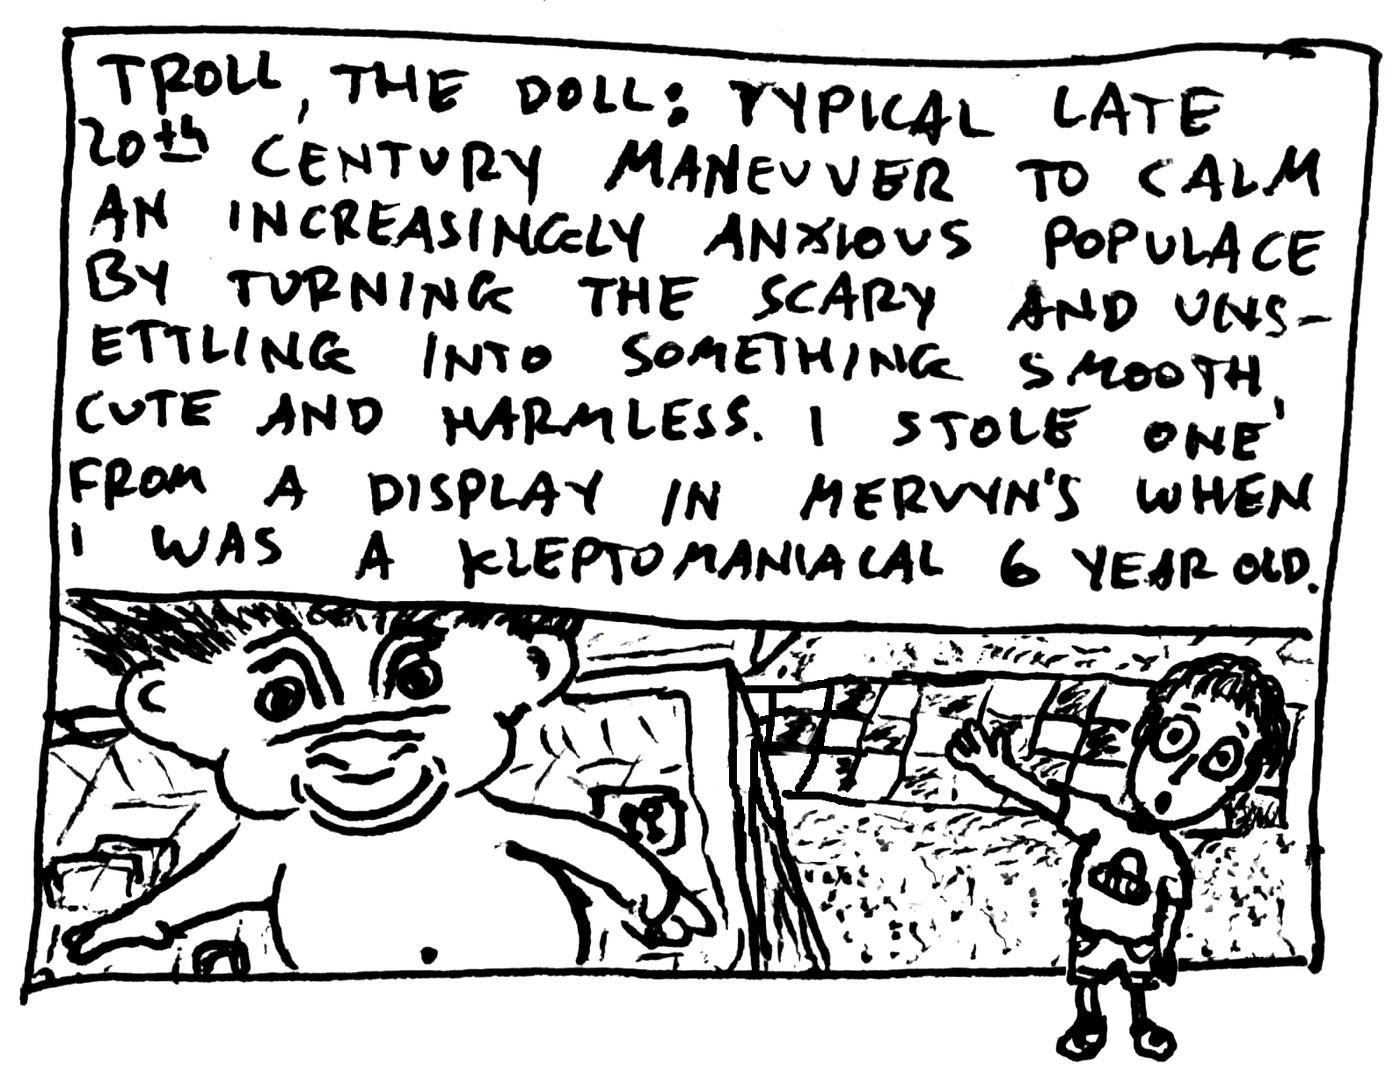 TROLL, THE DOLL: TYPICAL LATE
20th CENTURY MANEUVER TO CALM
AN INCREASINGLY ANXIOUS POPULACE
BY TURNING THE SCARY AND UNS-
ETTLING INTO SOMETHING SMOOTH,
CUTE AND HARMLESS. I STOLE ONE
FROM A DISPLAY IN MERVYN'S WHEN
I WAS A KLEPTOMANIACAL 6 YEAR OLD.